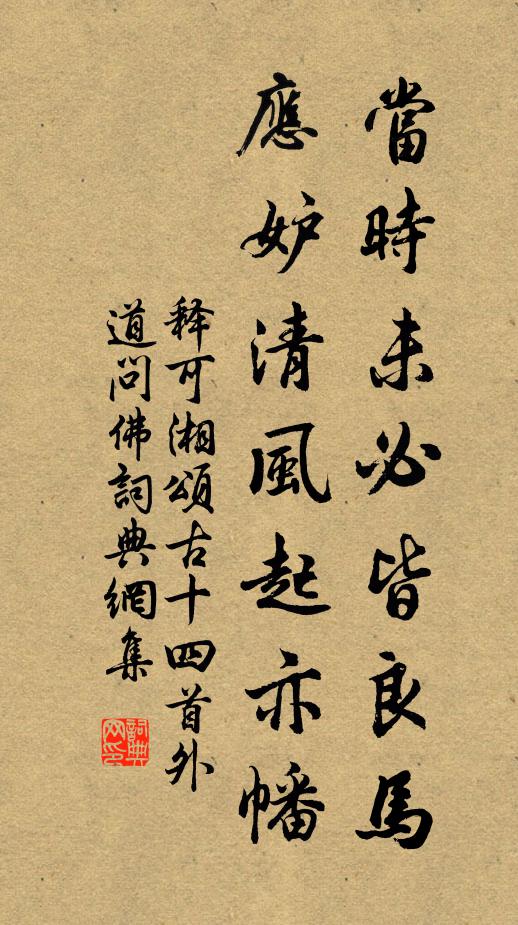 當時未必皆良馬
應妒清風起亦幡
释可湘頌古十四首外
道問佛詞典網集
詞典網印